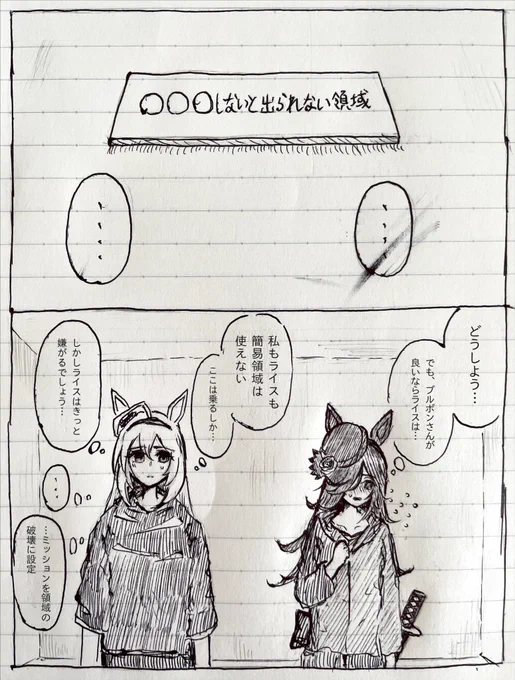 〇〇〇しないと出られない領域
・・・・
・・・・
どうしよう…
でも、ブルボンさんが
良いならライスは…
私もライスも
簡易領域は
使えない
ここは乗るしか…
しかしライスはきっと
嫌がるでしょう…
・・・
…ミッションを領域の
破壊に設定